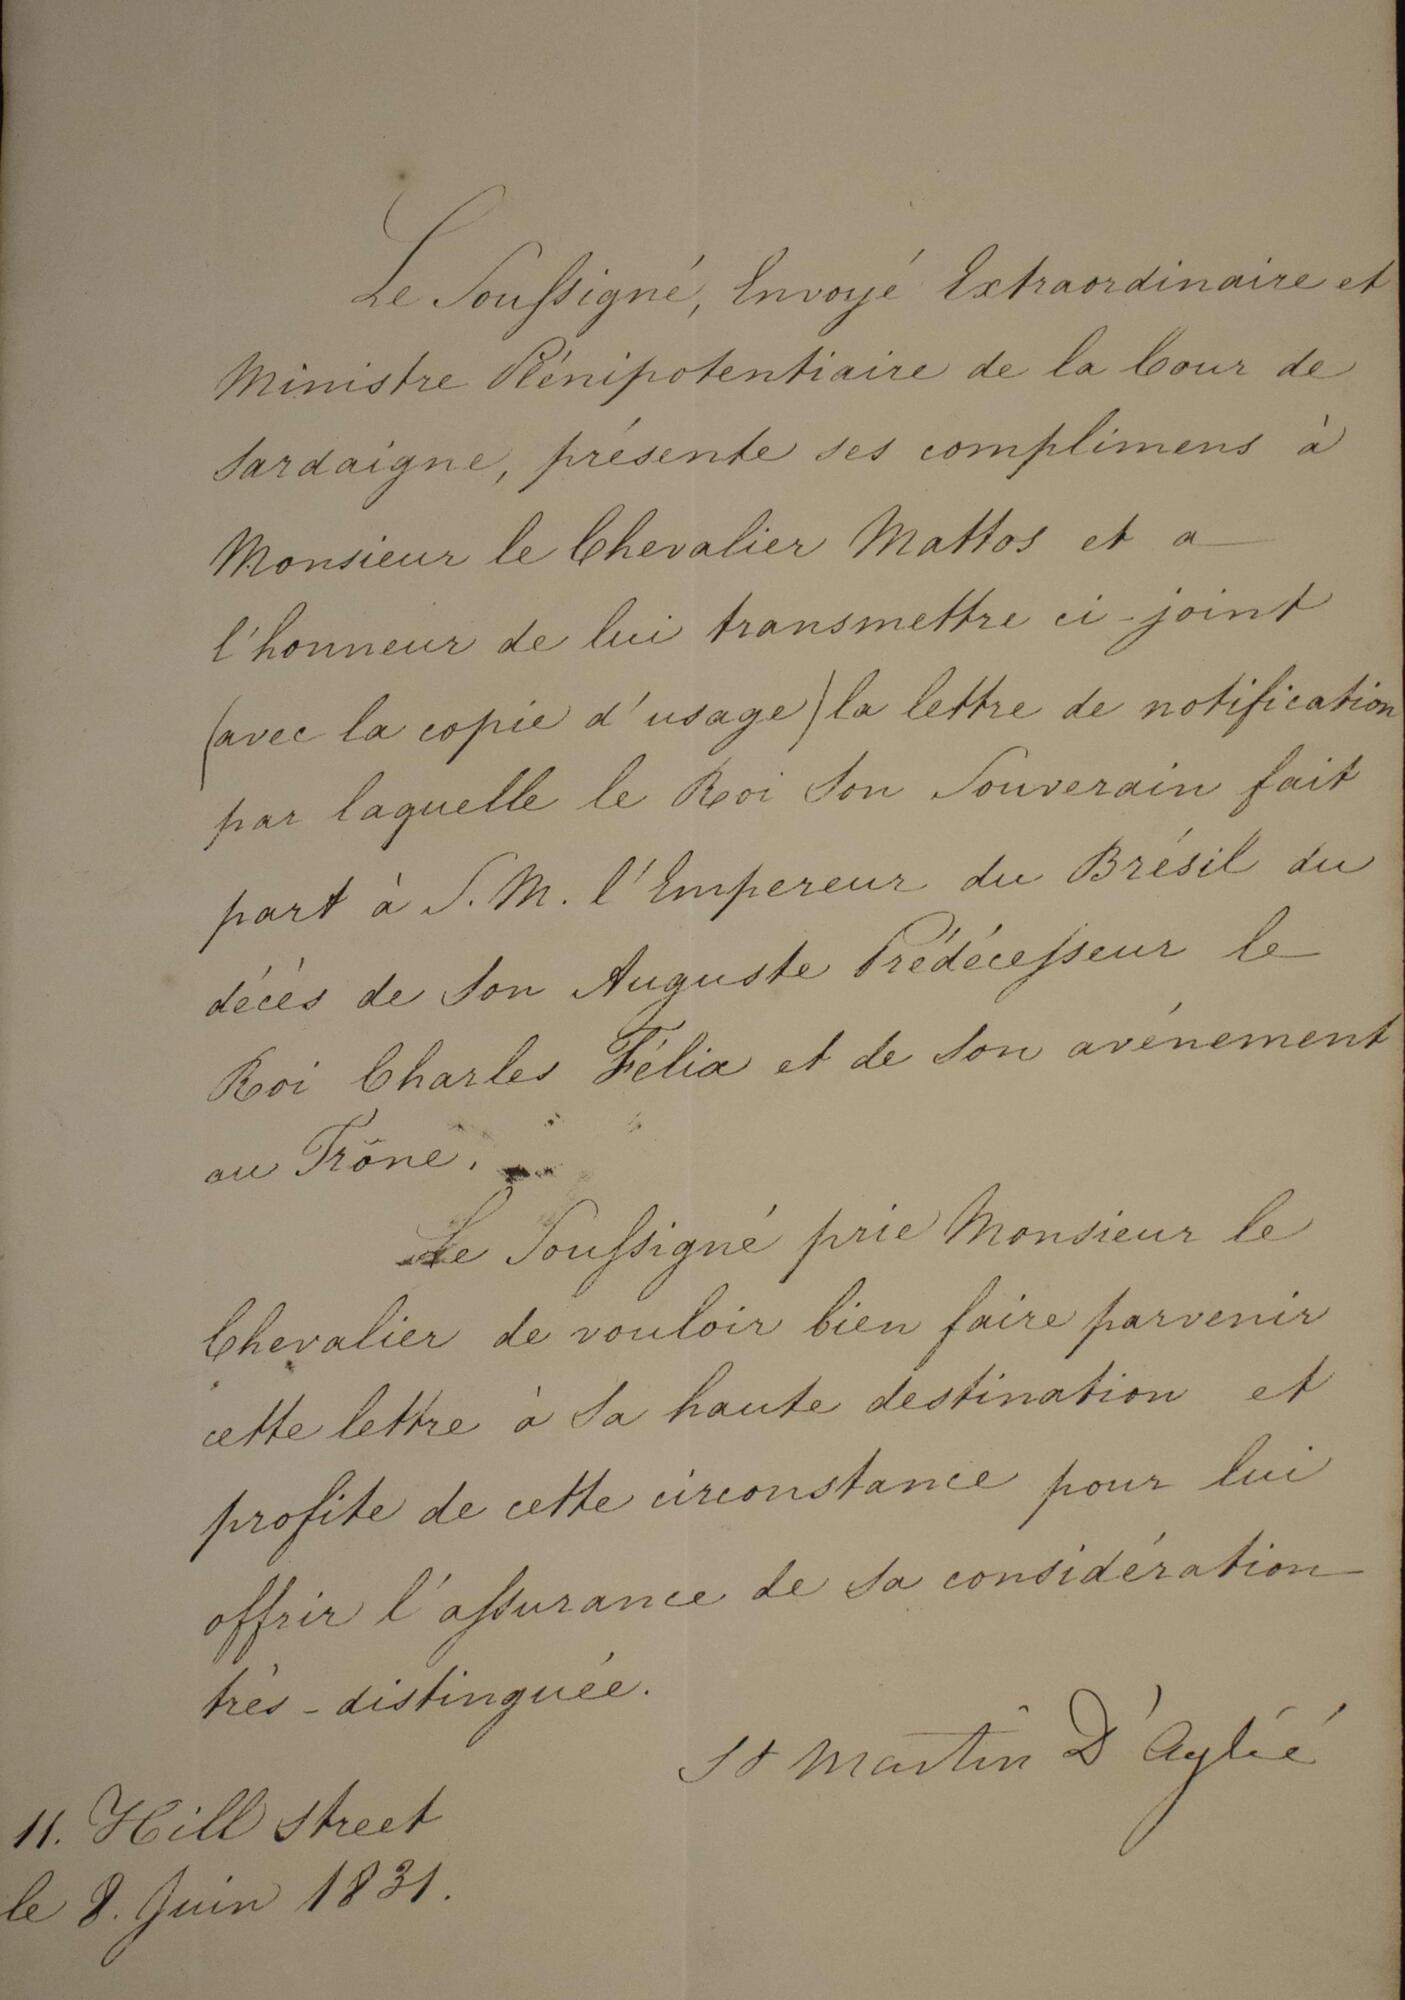 Le Soussigné, Envoyé Extraordinaire et
Ministre Plénipotentiaire de la Cour de
Sardaigne, présente ses complimens à
Monsieur le Chevalier Mattos et a
l'honneur de lui transmettre ci-joint
(avec la copie d'usage) la lettre de notification
par laquelle le Roi Son Souverain fait
part à S. M. l'Empereur du Brésil du
décès de Son Auguste Prédécesseur le
Roi Charles Félix et de Son avénement
au Trône.
Le Soussigné prie Monsieur le
Chevalier de vouloir bien faire parvenir
cette lettre à Sa haute destination et
profite de cette circonstance pour lui
offrir l'assurance de Sa considération
très-distinguée.
St Martin D'Aglié
11. Hill Street
le 8. Juin 1831.